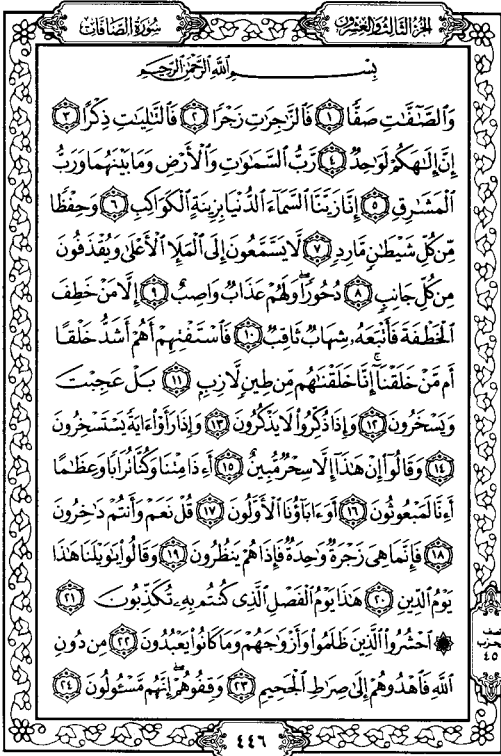 سُورَةُ الصَّافَّات
الجُزْءُ الثَّالِثُ وَالعِشْرُونَ
بِسْمِ ٱللَّهِ ٱلرَّحْمَٰنِ ٱلرَّحِيمِ
وَٱلصَّٰٓفَّٰتِ صَفًّا ١ فَٱلزَّٰجِرَٰتِ زَجْرًا ٢ فَٱلتَّٰلِيَٰتِ ذِكْرًا ٣
إِنَّ إِلَٰهَكُمْ لَوَٰحِدٌ ٤ رَّبُّ ٱلسَّمَٰوَٰتِ وَٱلْأَرْضِ وَمَا بَيْنَهُمَا وَرَبُّ
ٱلْمَشَٰرِقِ ٥ إِنَّا زَيَّنَّا ٱلسَّمَآءَ ٱلدُّنْيَا بِزِينَةٍ ٱلْكَوَاكِبِ ٦ وَحِفْظًا
مِّن كُلِّ شَيْطَٰنٍ مَّارِدٍ ٧ لَّا يَسَّمَّعُونَ إِلَى ٱلْمَلَإِ ٱلْأَعْلَىٰ وَيُقْذَفُونَ
مِن كُلِّ جَانِبٍ ٨ دُحُورًا وَلَهُمْ عَذَابٌ وَاصِبٌ ٩ إِلَّا مَنْ خَطِفَ
ٱلْخَطْفَةَ فَأَتْبَعَهُۥ شِهَابٌ ثَاقِبٌ ١٠ فَٱسْتَفْتِهِمْ أَهُمْ أَشَدُّ خَلْقًا
أَم مَّنْ خَلَقْنَآ إِنَّا خَلَقْنَٰهُم مِّن طِينٍ لَّازِبٍ ١١ بَلْ عَجِبْتَ
وَيَسْخَرُونَ ١٢ وَإِذَا ذُكِّرُوا۟ لَا يَذْكُرُونَ ١٣ وَإِذَا رَأَوْا۟ ءَايَةً يَسْتَسْخِرُونَ
١٤ وَقَالُوٓا۟ إِنْ هَٰذَآ إِلَّا سِحْرٌ مُّبِينٌ ١٥ أَءِذَا مِتْنَا وَكُنَّا تُرَابًا وَعِظَٰمًا
أَءِنَّا لَمَبْعُوثُونَ ١٦ أَوَءَابَآؤُنَا ٱلْأَوَّلُونَ ١٧ قُلْ نَعَمْ وَأَنتُمْ دَٰخِرُونَ
١٨ فَإِنَّمَا هِىَ زَجْرَةٌ وَٰحِدَةٌ فَإِذَا هُمْ يَنظُرُونَ ١٩ وَقَالُوا۟ يَٰوَيْلَنَا هَٰذَا
يَوْمُ ٱلدِّينِ ٢٠ هَٰذَا يَوْمُ ٱلْفَصْلِ ٱلَّذِى كُنتُم بِهِۦ تُكَذِّبُونَ ٢١
۞ ٱحْشُرُوا۟ ٱلَّذِينَ ظَلَمُوا۟ وَأَزْوَٰجَهُمْ وَمَا كَانُوا۟ يَعْبُدُونَ ٢٢ مِن دُونِ
ٱللَّهِ فَٱهْدُوهُمْ إِلَىٰ صِرَٰطِ ٱلْجَحِيمِ ٢٣ وَقِفُوهُمْ إِنَّهُم مَّسْـُٔولُونَ ٢٤
٤٥
٤٤٦